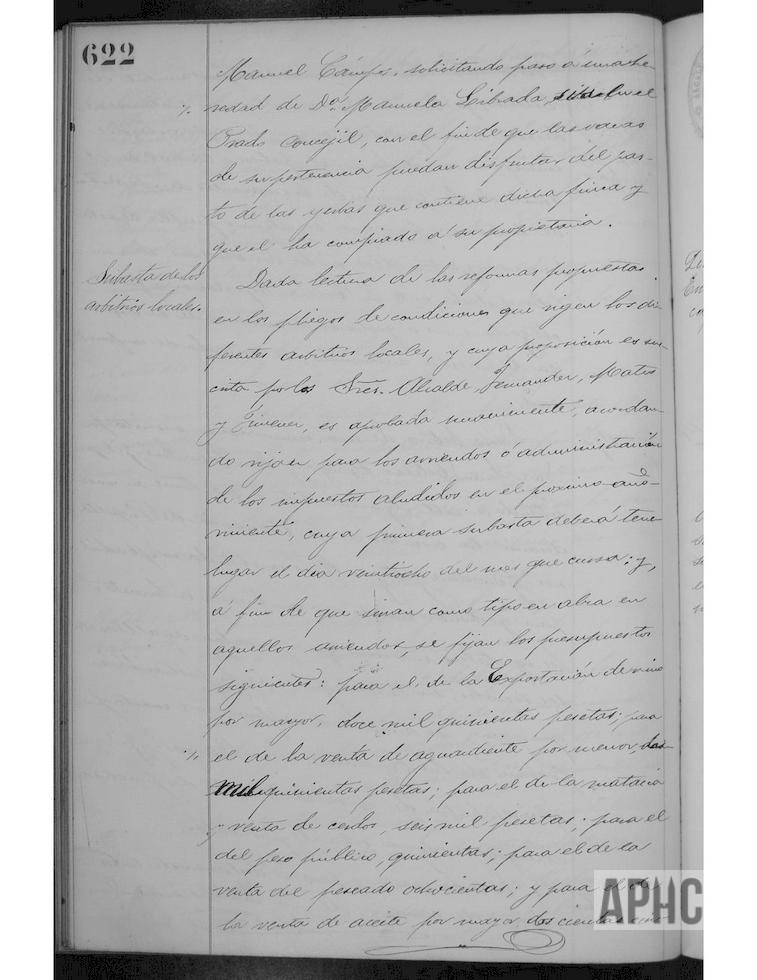 622
Manuel Campos, solicitando paso á una he-
redad de Dª Manuela Librada, sita en el
Prado Concejil, con el fin de que las vacas
de su pertenencia puedan disfrutar del pas-
to de las yerbas que contiene dicha finca y
que él ha comprado á su propietaria.
Subasta de los
arbitrios locales.
Dada lectura de las reformas propuestas
en los pliegos de condiciones que rigen los di-
ferentes arbitrios locales, y cuya proposición es sus-
crita por los Sres. Alcalde, Fernander, Mateo
y Jimener, es aprobada unanimente, acordan-
do rijan para los arriendos ó administración
de los impuestos aludidos en el próximo año
viniente, cuya primera subasta deberá tener
lugar el dia veintiocho del mes que cursa; y,
á fin de que sirvan como tipo en alza en
aquellos arriendos, se fijan los presupuestos
siguientes: para el de la Exportación de vino
por mayor, doce mil quinientas pesetas; para
el de la venta de aguardiente por menor, dos
mil quinientas pesetas; para el de la matacia
y venta de cerdos, seis mil pesetas; para el
del peso público, quinientas; para el de la
venta del pescado ochocientas; y para el de
la venta de aceite por mayor doscientas cin-
APHC